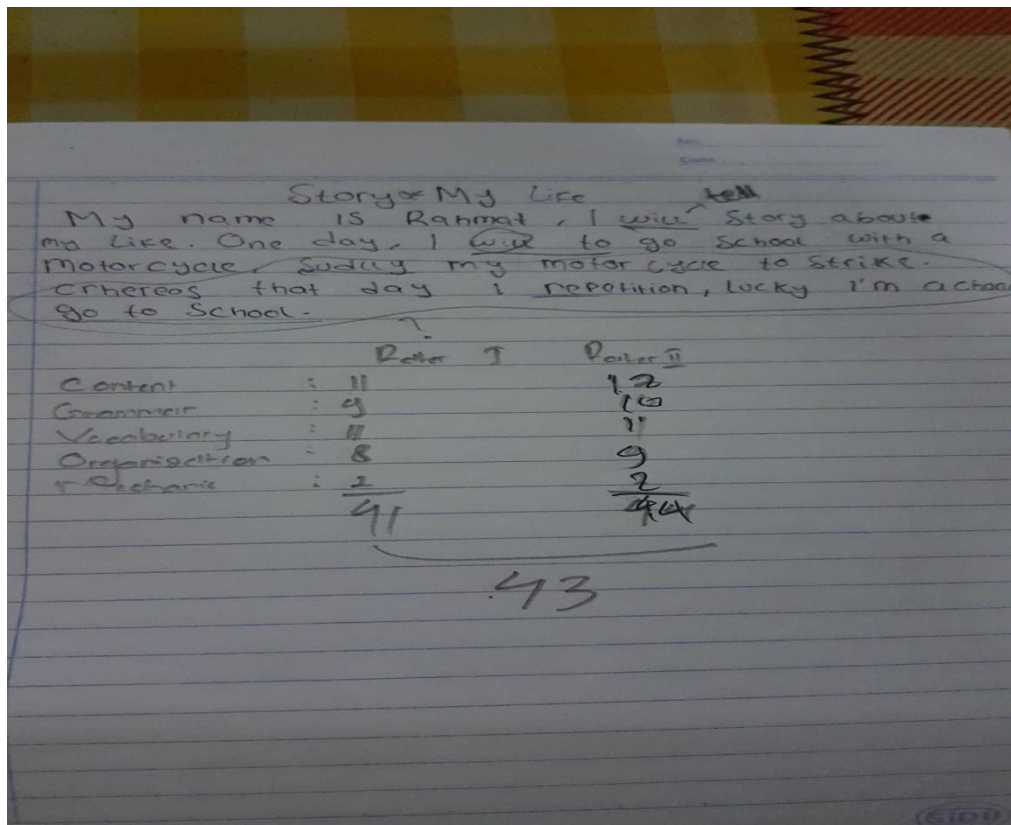 Story of My Life
tell
My name is Rahmat, I will Story about
my Like. One day, I will to go School with a
motorcycle, Sudlly my motor cycle to Strike.
that day I repetition, lucky I'm a
go to School.
?
Rater I Rater II
Content : 11 12
Grammar : 9 10
Vocabulary : 11 11
Organisation : 8 9
Mechanic : 2 2
41 44
43
SIDU